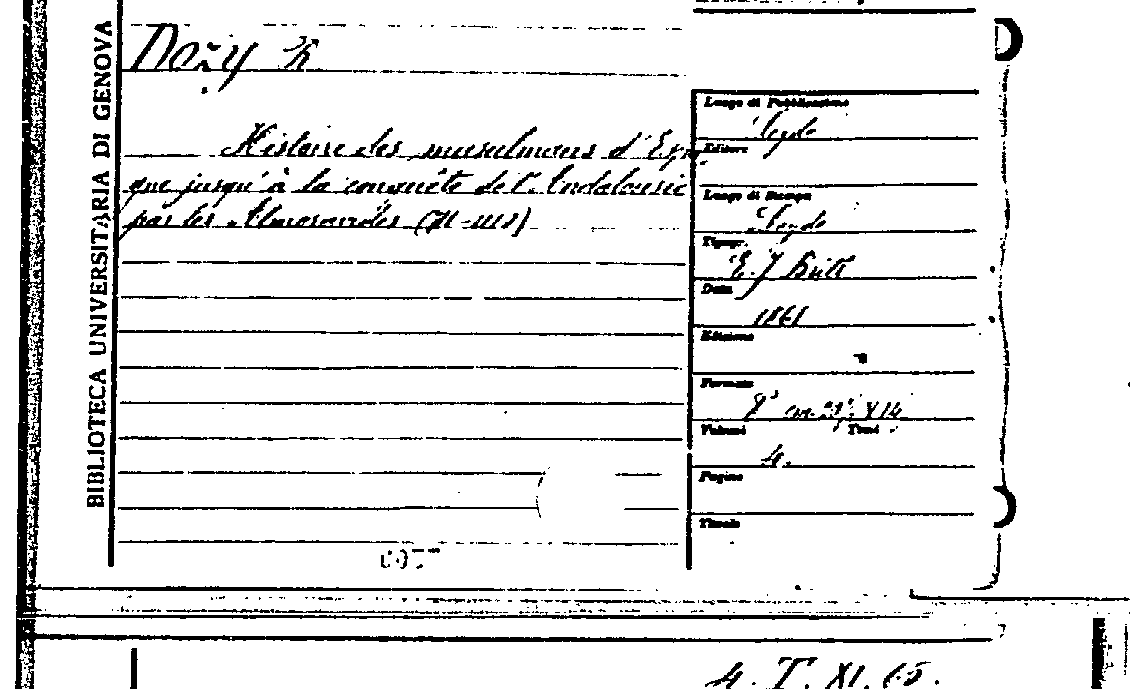 BIBLIOTECA UNIVERSITARIA DI GENOVA
Dozy R
Histoire des musulmans d'Espa-
gne jusqu'à la conquête de l'Andalousie
par les Almoravides (711-1110)
Luogo di Pubblicazione
Leyde
Editore
Luogo di Stampa
Leyde
Tipogr.
E. J Brill
Data
1861
Edizione
Formato
8° cm. 21 x 14
Volumi Tomi
4.
Pagine
Titolo
4. T. XI. 65.